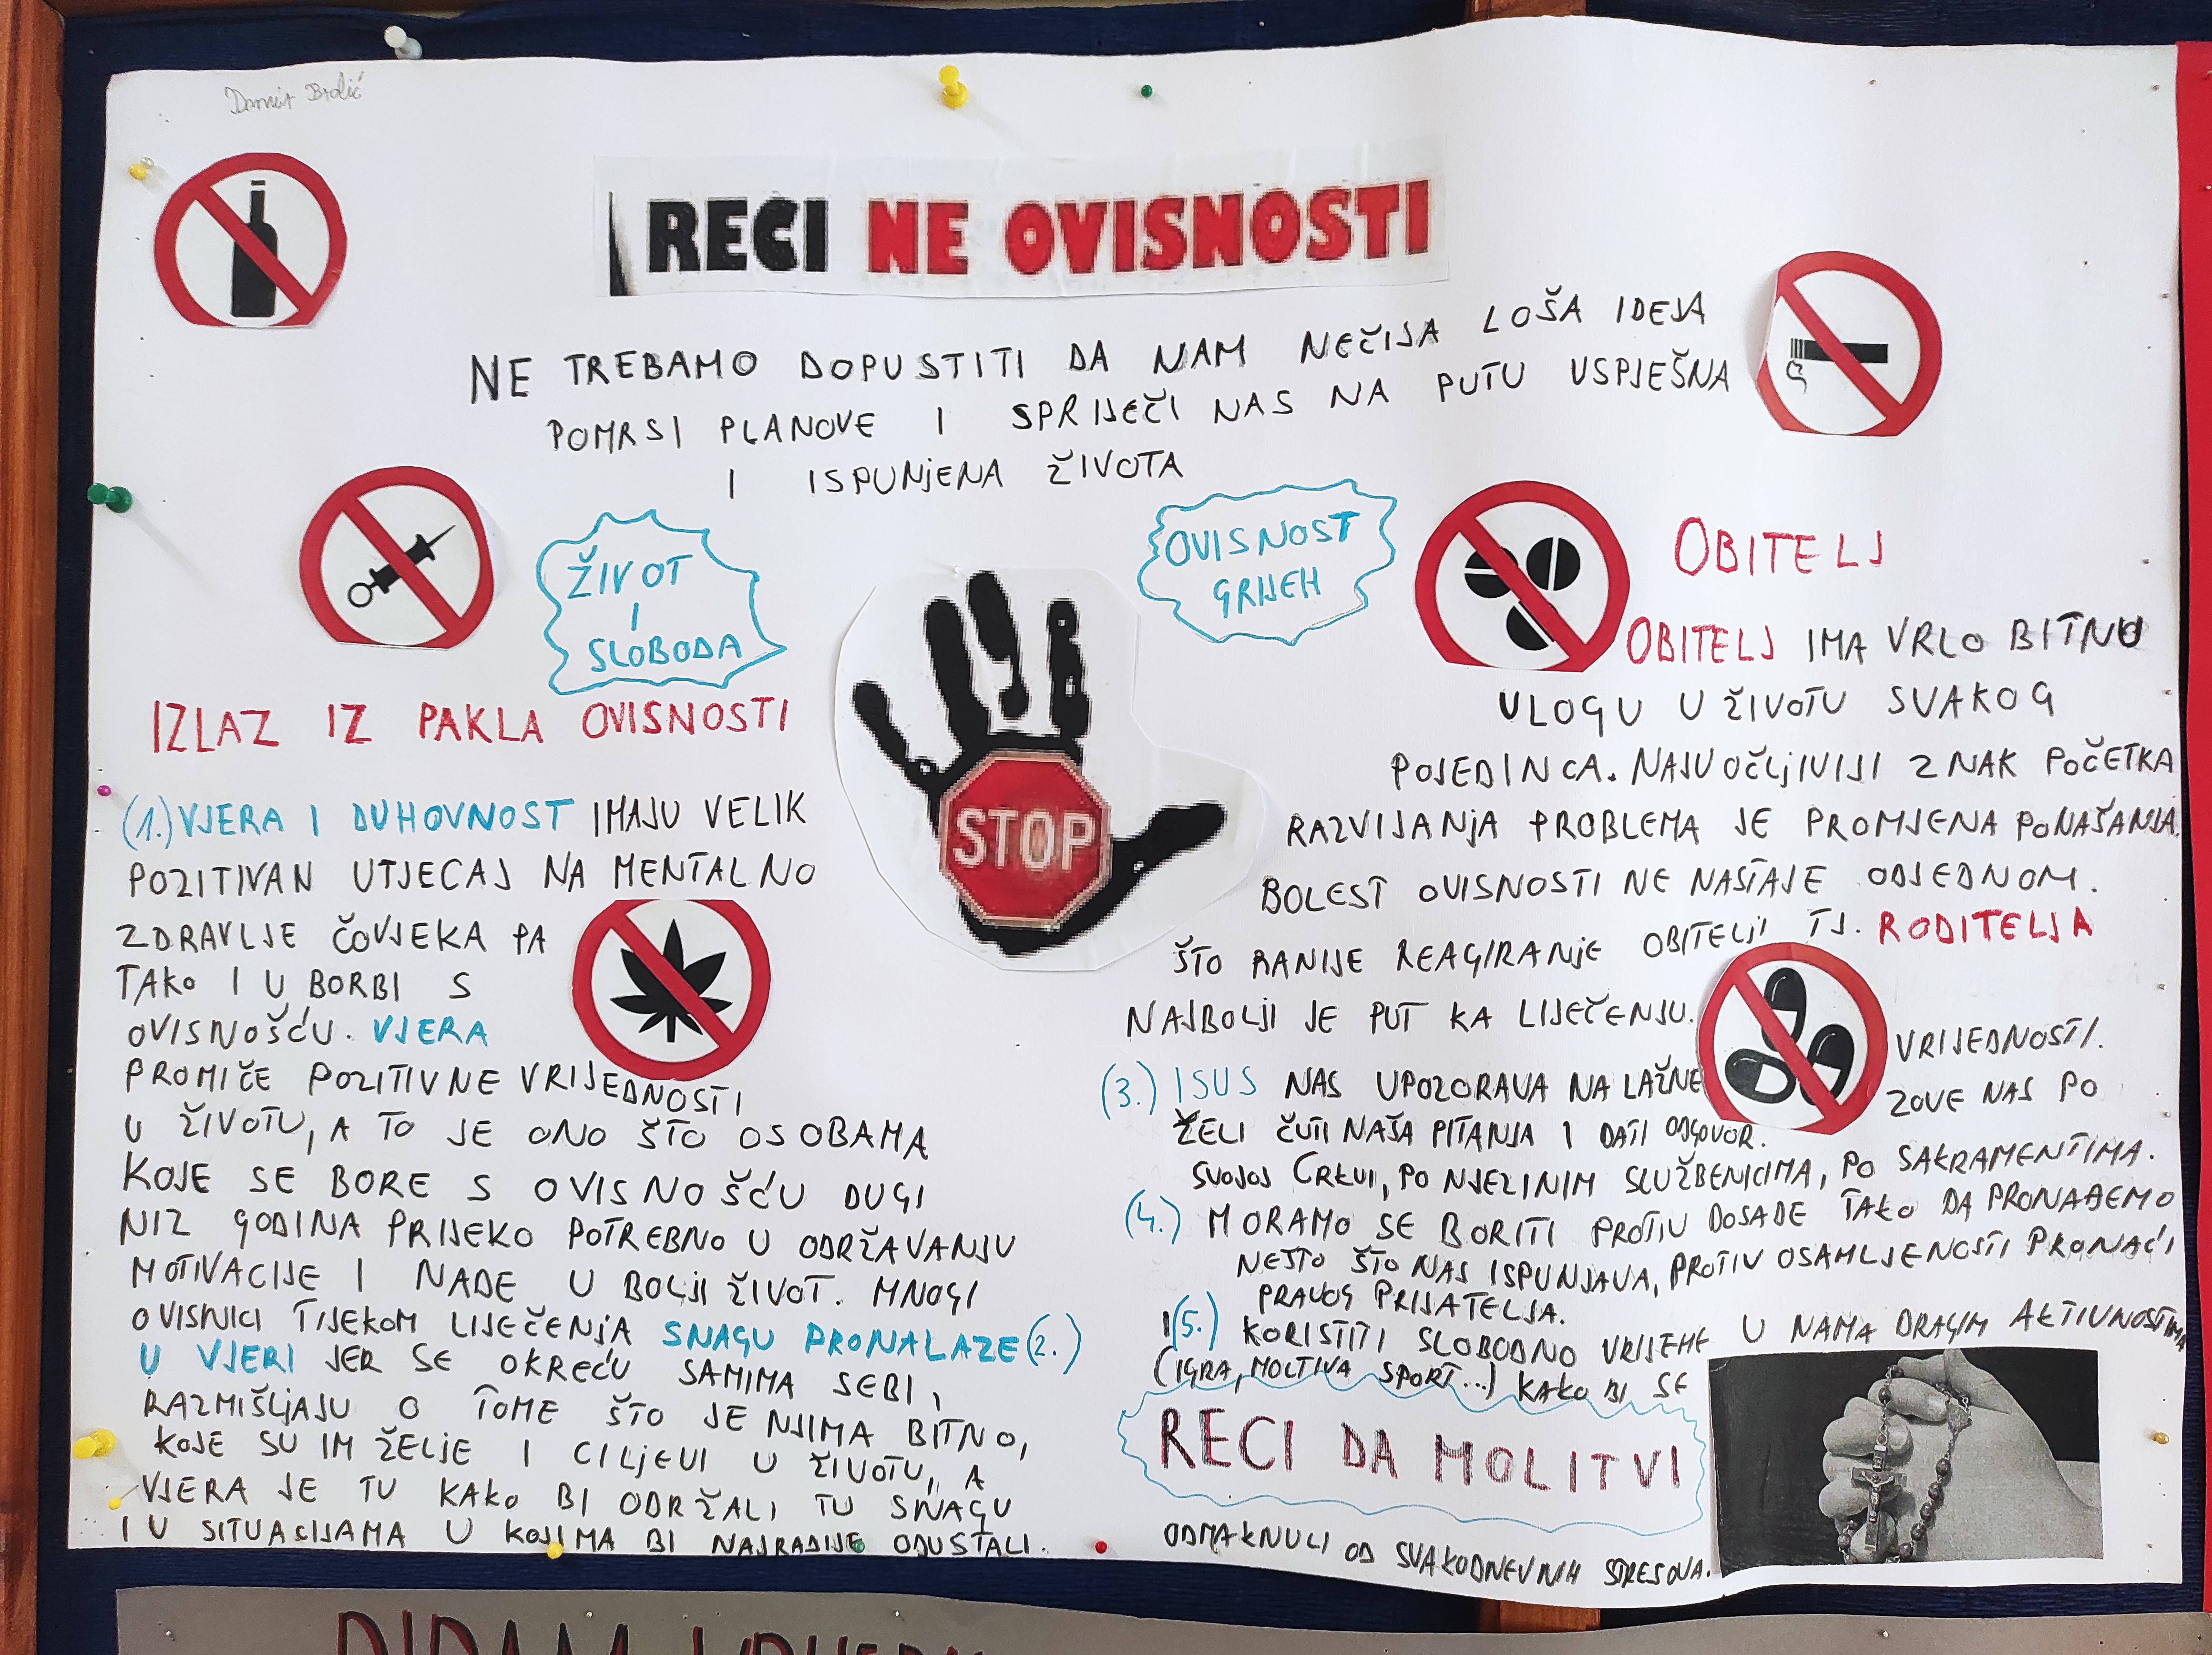 RECI NE OVISNOSTI
NE TREBAMO DOPUSTITI DA NAM NEČIJA LOŠA IDEJA
POMRSI PLANOVE I SPRIJEČI NAS NA PUTU USPJEŠNA
I ISPUNJENA ŽIVOTA
ŽIVOT
I
SLOBODA
IZLAZ IZ PAKLA OVISNOSTI
(1.) VJERA I DUHOVNOST IMAJU VELIK
POZITIVAN UTJECAJ NA MENTALNO
ZDRAVLJE ČOVJEKA PA
TAKO I U BORBI S
OVISNOŠĆU. VJERA
PROMIČE POZITIVNE VRIJEDNOSTI
U ŽIVOTU, A TO JE ONO ŠTO OSOBAMA
KOJE SE BORE S OVISNOŠĆU DUGI
NIZ GODINA PRIJEKO POTREBNO U ODRŽAVANJU
MOTIVACIJE I NADE U BOLJI ŽIVOT. MNOGI
OVISNICI TIJEKOM LIJEČENJA SNAGU PRONALAZE (2.)
U VJERI JER SE OKREĆU SAMIMA SEBI,
RAZMIŠLJAJU O TOME ŠTO JE NJIMA BITNO,
KOJE SU IM ŽELJE I CILJEVI U ŽIVOTU, A
VJERA JE TU KAKO BI ODRŽALI TU SNAGU
I U SITUACIJAMA U KOJIMA BI NAJRADIJE ODUSTALI.
STOP
OVISNOST
GRIJEH
OBITELJ
OBITELJ IMA VRLO BITNU
ULOGU U ŽIVOTU SVAKOG
POJEDINCA. NAJUOČLJIVIJI ZNAK POČETKA
RAZVIJANJA PROBLEMA JE PROMJENA PONAŠANJA.
BOLEST OVISNOSTI NE NASTAJE ODJEDNOM.
ŠTO RANIJE REAGIRANJE OBITELJI TJ. RODITELJA
NAJBOLJI JE PUT KA LIJEČENJU.
(3.) ISUS NAS UPOZORAVA NA LAŽNE VRIJEDNOSTI.
ŽELI ČUTI NAŠA PITANJA I DATI ODGOVOR. ZOVE NAS PO
SVOJOJ CRKVI, PO NJEZINIM SLUŽBENICIMA, PO SAKRAMENTIMA.
(4.) MORAMO SE BORITI PROTIV DOSADE TAKO DA PRONAĐEMO
NEŠTO ŠTO NAS ISPUNJAVA, PROTIV OSAMLJENOSTI PRONAĆI
PRAVOG PRIJATELJA.
I (5.) KORISTITI SLOBODNO VRIJEME U NAMA DRAGIM AKTIVNOSTIMA
(IGRA, MOLTIVA SPORT...) KAKO BI SE
RECI DA MOLITVI
ODMAKNULI OD SVAKODNEVNIH STRESOVA.